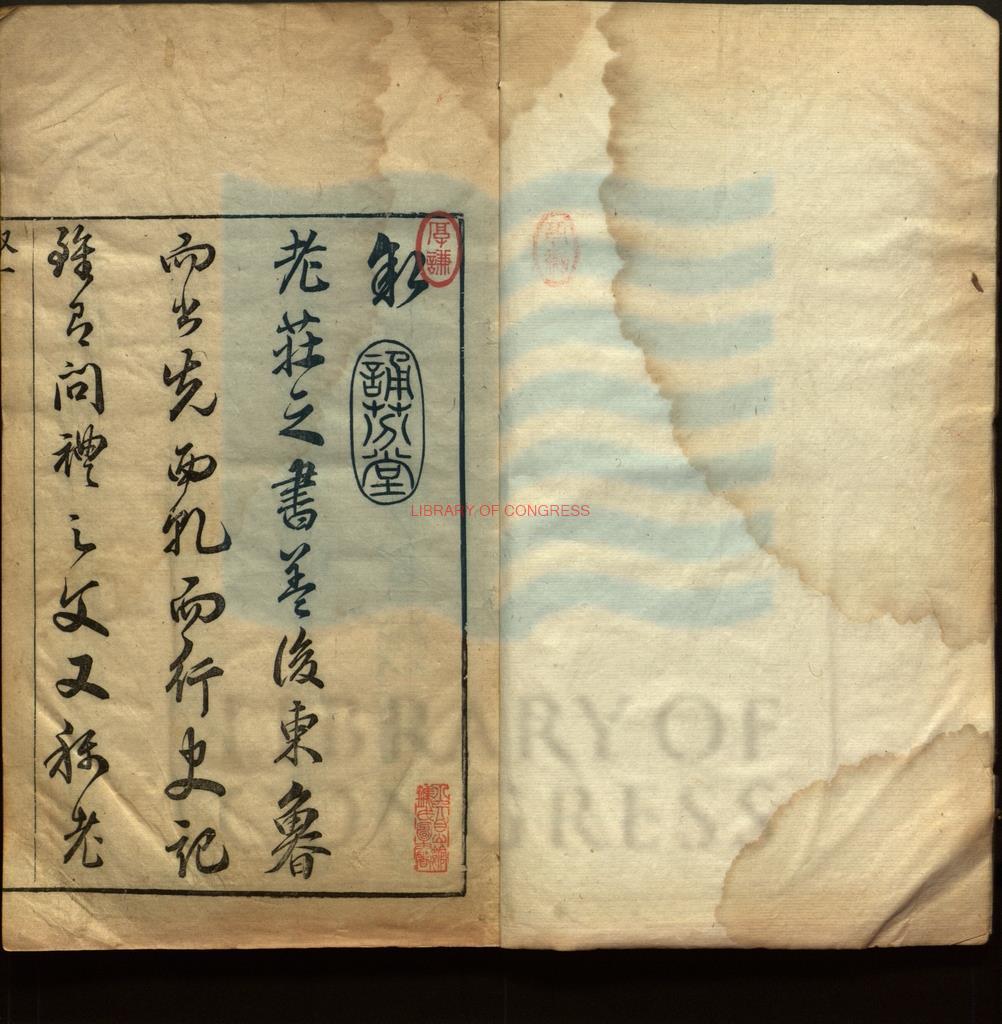 敘
誦芬堂
厚謙
老莊之書蓋後東魯
而出先西乾而行史記
雖有問禮之文又稱老
LIBRARY OF CONGRESS
LIBRARY OF
CONGRESS